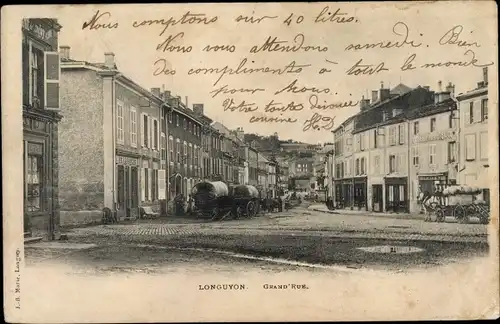 Nous comptons sur 40 litres.
Nous vous attendons samedi. Bien
des compliments à tout le monde
pour Nous.
Votre toute dévouée
cousine
LONGUYON. GRAND'RUE.